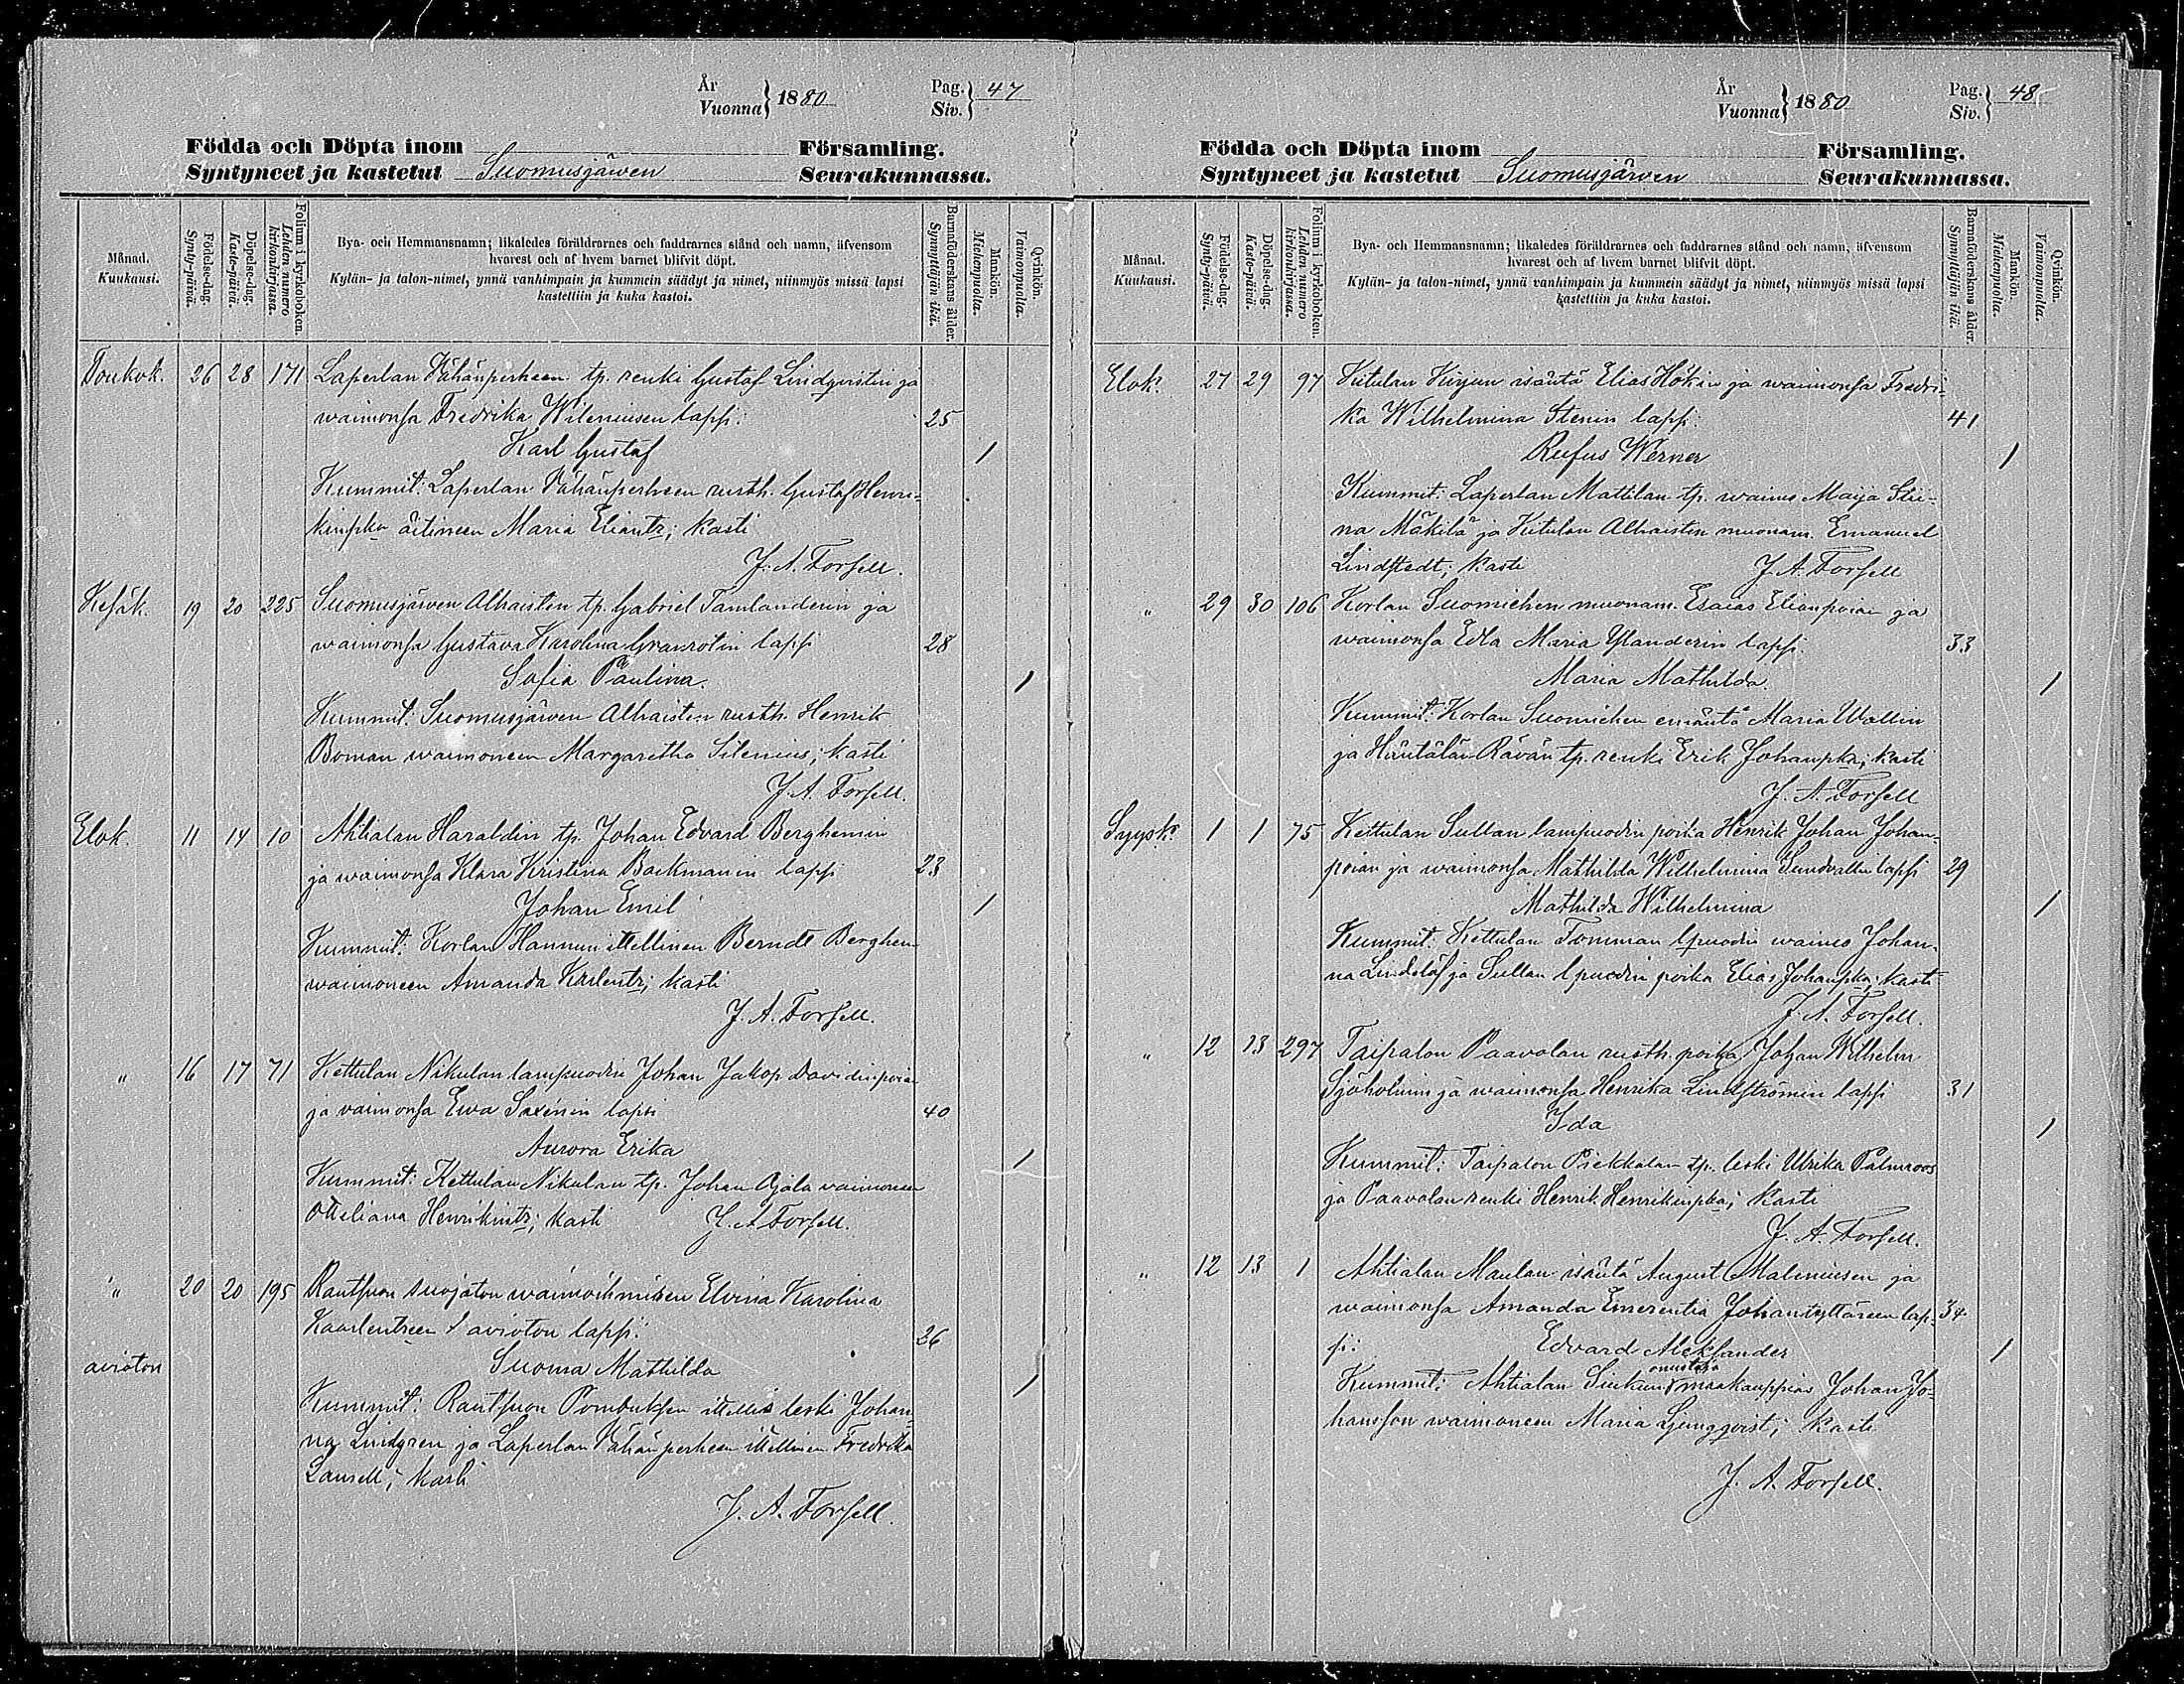 År
Vuonna } 1880
Pag.
Siv. } 47
Födda och Döpta inom Församling.
Syntyneet ja kastetut Suomusjärven Seurakunnassa.
Månad.
Kuukausi.
Födelse-dag.
Synty-päivä.
Döpelse-dag.
Kaste-päivä.
Folium i kyrkoboken.
Lehden numero kirkonkirjassa.
Bya- och Hemmansnamn; likaledes föräldrarnes och faddrarnes stånd och namn, äfvensom
hvarest och af hvem barnet blifvit döpt.
Kylän- ja talon-nimet, ynnä vanhimpain ja kummein säädyt ja nimet, niinmyös missä lapsi
kastettiin ja kuka kastoi.
Barnaföderskans ålder.
Synnyttäjän ikä.
Mankön.
Miehenpuolia.
Qvinkön.
Vaimonpuolia.
Toukok. 26 28 171 Laperlan Vähänperheen tp. renki Gustaf Lindqvistin ja
waimonsa Fredrika Wileniusen lapsi. 25
Karl Gustaf 1
Kummit: Laperlan Vähänperheen rusth. Gustaf Henri-
kinpka äitineen Maria Eliantr; kasti
J. A. Forsell.
Kesäk. 19 20 225 Suomusjärven Alhaisten tp. Gabriel Tamlanderin ja
waimonsa Gustava Karolina Granrotin lapsi 28
Sofia Paulina. 1
Kummit: Suomusjärven Alhaisten rusth. Henrik
Boman waimoneen Margaretha Silenius; kasti
J. A. Forsell.
Elok. 11 14 10 Ahtialan Haraldin tp. Johan Edvard Berghemin
ja waimonsa Klara Kristina Backmanin lapsi 23
Johan Emil 1
Kummit: Korlan Hannun itellinen Berndt Berghem
waimoneen Amanda Karlentr; kasti
J. A. Forsell.
" 16 17 71 Kettulan Nikulan lampuodin Johan Jakop Davidinpoian
ja vaimonsa Ewa Saxénin lapsi 40
Aurora Erika 1
Kummit: Kettulan Nikulan tp. Johan Ojala vaimoneen
Otteliana Henrikintr; kasti J. A. Forsell.
" 20 20 195 Rautsuon suojaton waimoihmisen Elvina Karolina
Kaarlentreen avioton lapsi. 26
avioton Suoma Mathilda 1
Kummit: Rautsuon Pombuksen itellis leski Johan-
na Lindgren ja Laperlan Vähänperheen itellinen Fredrika
Laurell; kasti
J. A. Forsell.
År
Vuonna } 1880
Pag.
Siv. } 48
Födda och Döpta inom Församling.
Syntyneet ja kastetut Suomusjärven Seurakunnassa.
Månad.
Kuukausi.
Födelse-dag.
Synty-päivä.
Döpelse-dag.
Kaste-päivä.
Folium i kyrkoboken.
Lehden numero kirkonkirjassa.
Bya- och Hemmansnamn; likaledes föräldrarnes och faddrarnes stånd och namn, äfvensom
hvarest och af hvem barnet blifvit döpt.
Kylän- ja talon-nimet, ynnä vanhimpain ja kummein säädyt ja nimet, niinmyös missä lapsi
kastettiin ja kuka kastoi.
Barnaföderskans ålder.
Synnyttäjän ikä.
Mankön.
Miehenpuolia.
Qvinkön.
Vaimonpuolia.
Elok. 27 29 97 Kitulan Kirjun isäntä Elias Hökin ja waimonsa Fredri-
ka Wilhelmina Stenin lapsi. 41
Rufus Werner 1
Kummit: Laperlan Mattilan tp. waimo Maija Stii-
na Mäkilä ja Kitulan Alhaisten muonam. Emanuel
Lindstedt; kasti J. A. Forsell
" 29 30 106 Korlan Suomichen muonam. Esaias Elianpoian ja
waimonsa Edla Maria Ylanderin lapsi. 33
Maria Mathilda. 1
Kummit: Korlan Suomichen emäntä Maria Wallin
ja Häntälän Rävän tp. renki Erik Johanpka; kasti
J. A. Forsell
Syysk. 1 1 75 Kettulan Sullan lampuodin poika Henrik Johan Johan-
poian ja waimonsa Mathilda Wilhelmina Sundvallin lapsi 29
Mathilda Wilhelmina 1
Kummit: Kettulan Tomman lpuodin waimo Johan-
na Lindelöf ja Sullan lpuodin poika Elias Johanpka; kasti
J. A. Forsell.
" 12 13 297 Taipalon Paavolan rusth. poika Johan Wilhelm
Sjöholmin ja waimonsa Henrika Lindströmin lapsi 31
Ida 1
Kummit: Taipalon Piekkalan tp. leski Ulrika Palmroos
ja Paavolan renki Henrik Henrikinpka; kasti
J. A. Forsell.
" 12 13 1 Ahtialan Maulan isäntä August Maleniusen ja
waimonsa Amanda Emerentia Johantyttäreen lap- 34
si. Edvard Aleksander 1
Kummit: Ahtialan maakauppias Johan Jo-
hansson waimoneen Maria Ljungqvist; kasti
J. A. Forsell.